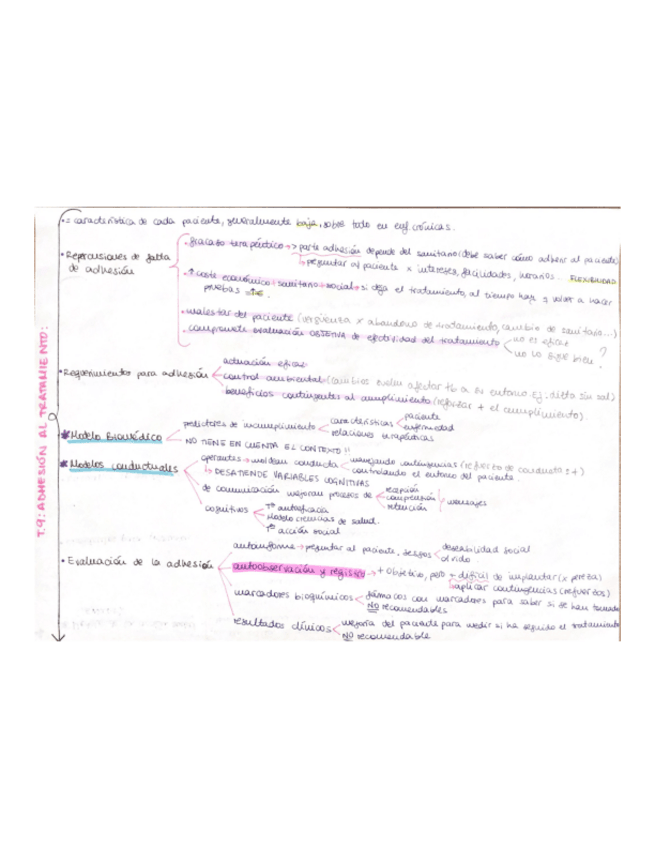 T.9: ADHESIÓN AL TRATAMIENTO:
= característica de cada paciente, generalmente baja, sobre todo en enf. crónicas.
• Repercusiones de falta de adhesión
• fracaso terapéutico → parte adhesión depende del sanitario (debe saber cómo adherir al paciente)
↳ preguntar al paciente x intereses, facilidades, horarios. FLEXIBILIDAD
• ↑ coste económico + sanitario + social → si deja el tratamiento, al tiempo hay q volver a hacer
pruebas
• malestar del paciente (vergüenza x abandono de tratamiento, cambio de sanitario...)
• compromete evaluación OBJETIVA de efectividad del tratamiento
no es eficaz
no lo sigue bien ?
• Requerimientos para adhesión
actuación eficaz
control ambiental (cambios suelen afectar tb a su entorno Ej. dieta sin sal)
beneficios contingentes al cumplimiento (reforzar + el cumplimiento)
* Modelo Biomédico
predictores de incumplimiento
características
paciente
enfermedad
relaciones terapéuticas
NO TIENE EN CUENTA EL CONTEXTO !!
* Modelos conductuales
operantes → moldean conducta
manejando contingencias (refuerzo de conducta s+)
controlando el entorno del paciente
↳ DESATIENDE VARIABLES COGNITIVAS
de comunicación mejoran procesos de
recepción
comprensión
retención
mensajes
cognitivos
Tª autoeficacia
Modelo creencias de salud.
Tª acción social
• Evaluación de la adhesión
autoinforme → preguntar al paciente, sesgos
deseabilidad social
olvido
autoobservación y registro → + objetivo, pero + difícil de implantar (x pereza)
aplicar contingencias (refuerzos)
marcadores bioquímicos
fármacos con marcadores para saber si se han tomado
NO recomendables
resultados clínicos
mejoría del paciente para medir si ha seguido el tratamiento
NO recomendable